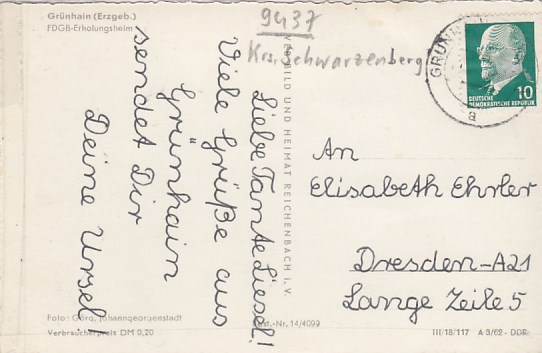 Grünhain (Erzgeb.)
FDGB-Erholungsheim
9437
Krs. Schwarzenberg
Liebe Tante Liesel!
Viele Grüße aus
Grünhain
sendet Dir
Deine Ursel!
VERLAG BILD UND HEIMAT REICHENBACH i. V.
DEUTSCHE
DEMOKRATISCHE REPUBLIK
10
a
An
Elisabeth Ehrler
Dresden-A21
Lange Zeile 5
Foto: Görg, Johanngeorgenstadt
Verbraucherpreis DM 0,20
Best.-Nr. 14/4099
III/18/117 A 3/62 - DDR